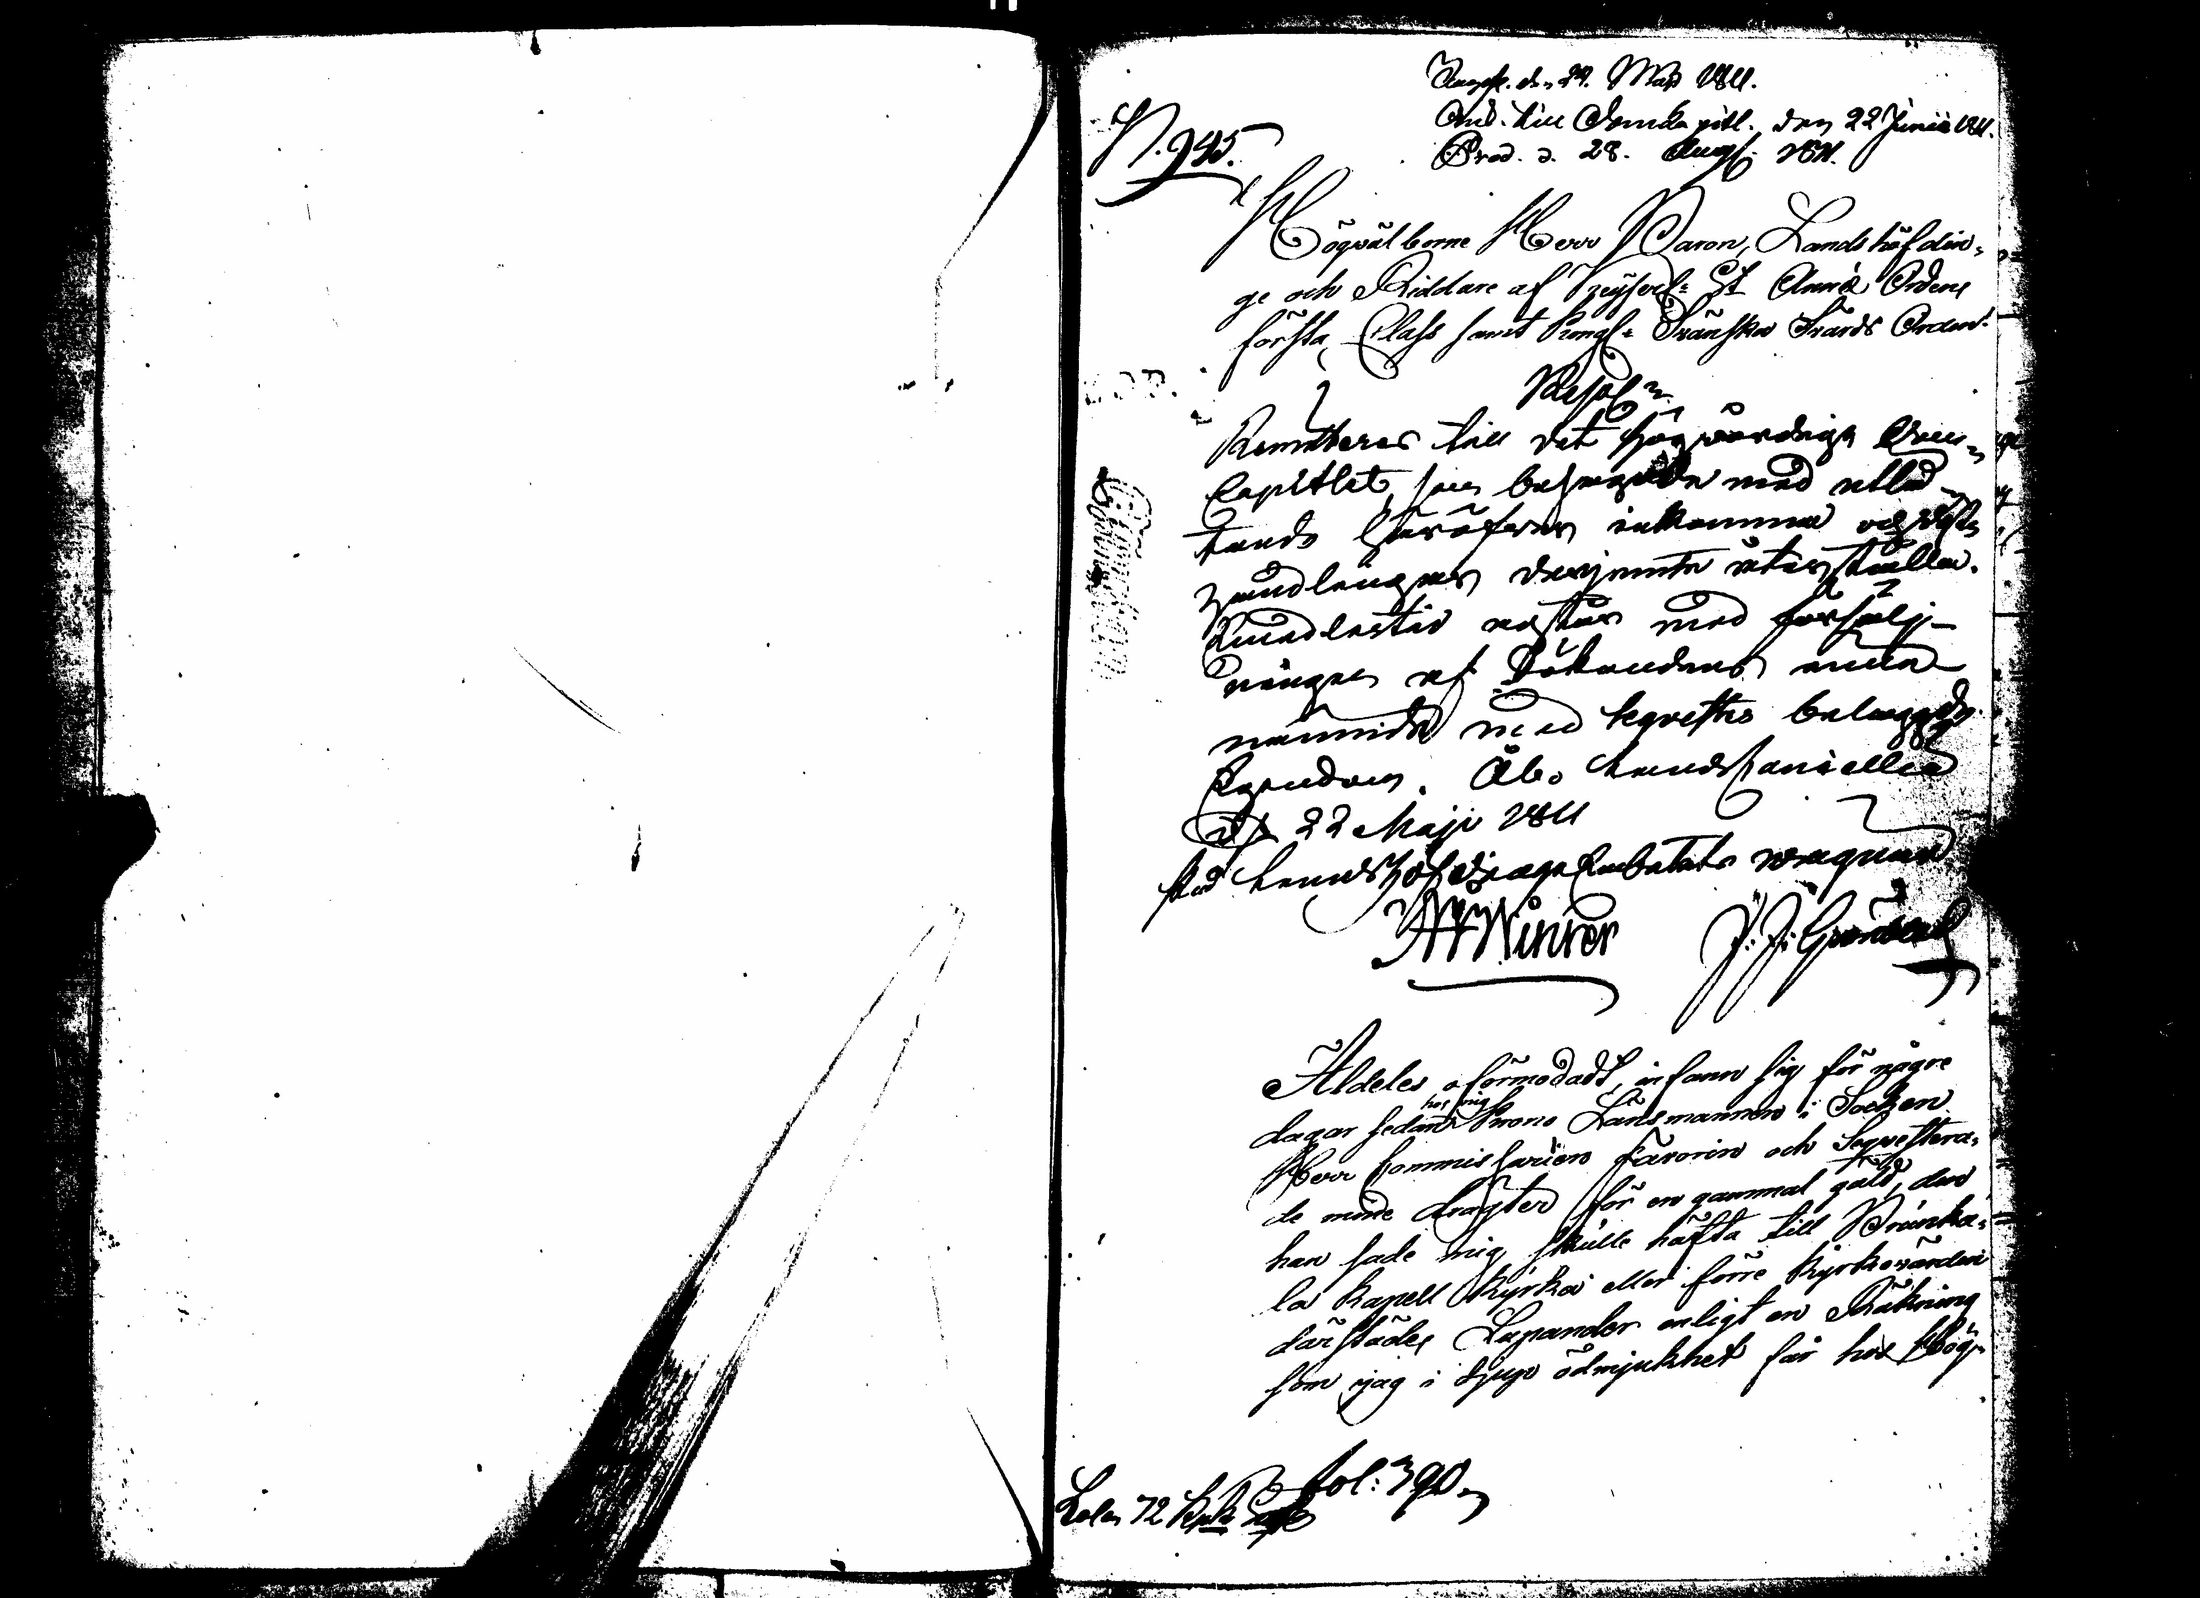 den 29. Maji 1811.
till Domkapitl. den 22 Junii 1811.
d. 28. Aug. 1811.
N. 945.
Högvälborne Herr Baron, Landshöfdin-
ge och Riddare af Keyserl: St Annæ Ordens
första Class samt Kongl: Svänska Svärds Orden.
Resol:n
Remitteras till det högwördiga Dom-
Capitlet, som behagade med utlå-
tande häröfver inkomma och
handlingen derjemte återställa.
Emedlertid anstår med försälj-
ningen af Sökandens
med seqvester belaggda
Egendom. Åbo Landscancellie
den 22 Maji 1811
Landshöfdinge Embetets wägnar
Winter
Aldeles oförmodadt, infann sig för någre
dagar sedan hos mig Krono Länsmannen i Socken
Herr Commissarien Favorin och Seqvestera-
de mine dragter för en gammal gäld, den
han sade mig skulle häfta till Vränka-
la Kapell Kyrka eller förre Kyrkovärden
därstädes Lupander enligt en Räkning
som jag i djup ödmjukhet får hos Hög-
fol: 390
72